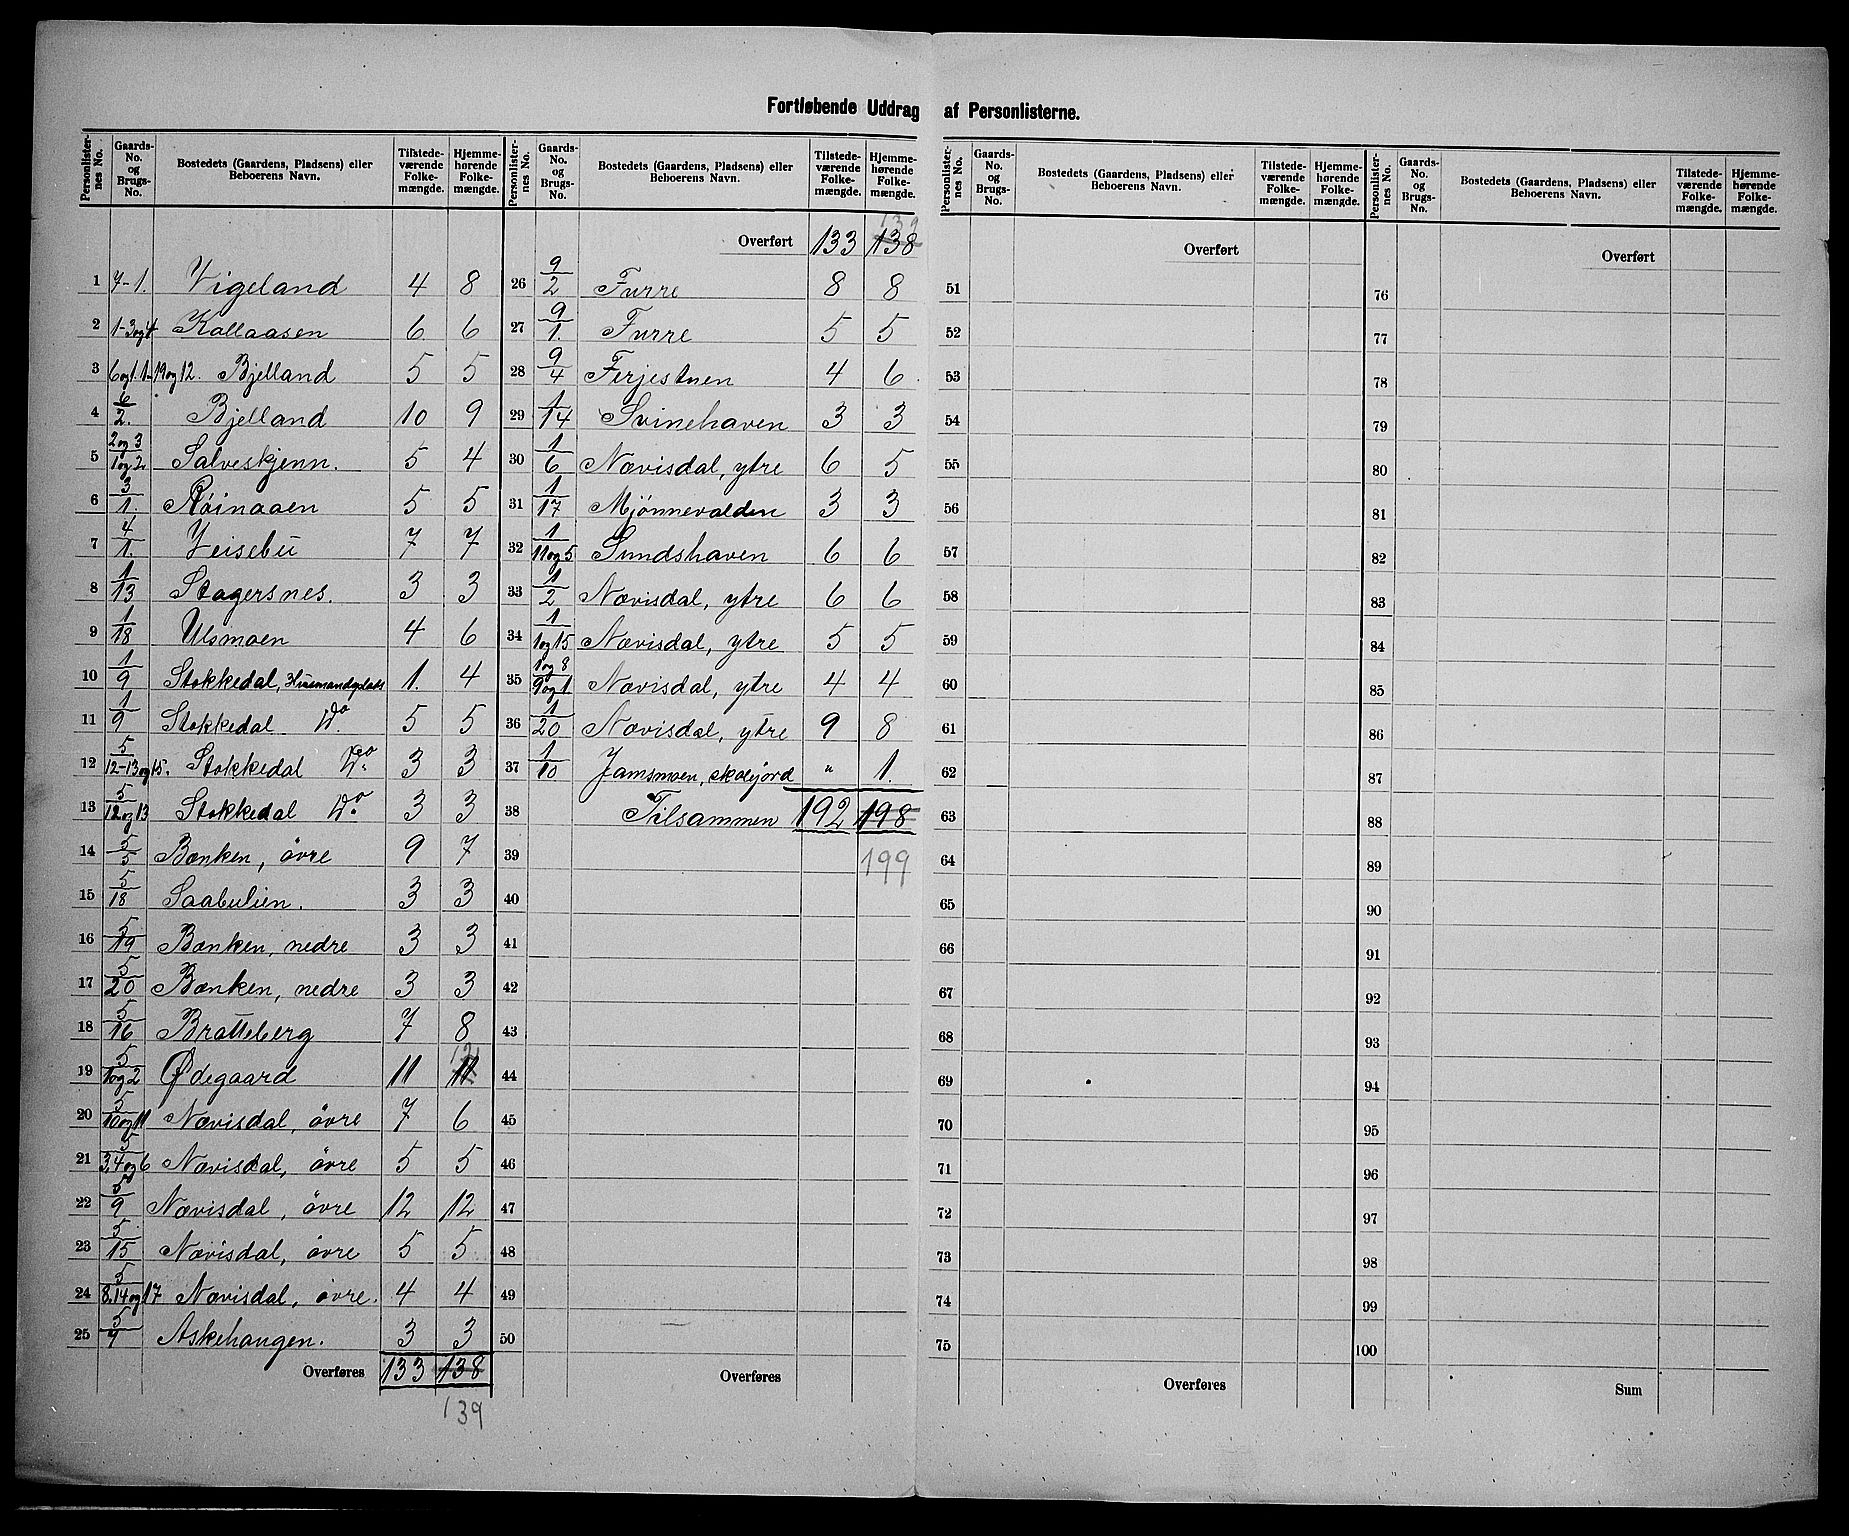 Fortløbende Uddrag af Personlisterne.
Personlisternes No. | Gaards-No. og Brugs-No. | Bostedets (Gaardens, Pladsens) eller Beboerens Navn. | Tilstedeværende Folkemængde. | Hjemmehørende Folkemængde.
1 | 7-1. | Vigeland | 4 | 8
2 | 1-3og4 | Kallaasen | 6 | 6
3 | 6og1.1-19og12. | Bjelland | 5 | 5
4 | 6/2. | Bjelland | 10 | 9
5 | 2og3/1og2 | Salveskjenn. | 5 | 4
6 | 3/1. | Röinaaen | 5 | 5
7 | 4/1. | Veisebu | 7 | 7
8 | 1/13 | Stagersnes. | 3 | 3
9 | 1/18 | Ulsmoen | 4 | 6
10 | 1/9 | Stokkedal, Husmandsplads | 1. | 4
11 | 1/9 | Stokkedal Do | 5 | 5
12 | 5/12-13og15. | Stokkedal Do | 3 | 3
13 | 5/12og13 | Stokkedal Do | 3 | 3
14 | 5/5 | Bænken, övre | 9 | 7
15 | 5/18 | Saabulien. | 3 | 3
16 | 5/19 | Bænken, nedre | 3 | 3
17 | 5/20 | Bænken, nedre | 3 | 3
18 | 5/16 | Bratteberg | 7 | 8
19 | 5/1og2 | Ødegaard | 11 | 11 12
20 | 5/10og11 | Nævisdal, övre | 7 | 6
21 | 5/3,4og6 | Nævisdal, övre | 5 | 5
22 | 5/9 | Nævisdal, övre | 12 | 12
23 | 5/15 | Nævisdal, övre | 5 | 5
24 | 5/8.14og17 | Nævisdal, övre. | 4 | 4
25 | 5/7 | Askehaugen. | 3 | 3
Overføres | 133 | 138
139
Personlisternes No. | Gaards-No. og Brugs-No. | Bostedets (Gaardens, Pladsens) eller Beboerens Navn. | Tilstedeværende Folkemængde. | Hjemmehørende Folkemængde.
139
Overført | 133 | 138
26 | 9/2 | Furre | 8 | 8
27 | 9/1. | Furre | 5 | 5
28 | 9/4 | Ferjestuen | 4 | 6
29 | 1/14 | Svinehaven | 3 | 3
30 | 1/6 | Nævisdal, ytre | 6 | 5
31 | 1/17 | Mjönnevalden | 3 | 3
32 | 1/11og5 | Sundshaven | 6 | 6
33 | 1/2 | Nævisdal, ytre | 6 | 6
34 | 1/1og15 | Nævisdal, ytre | 5 | 5
35 | 1og8/9og1 | Nævisdal, ytre | 4 | 4
36 | 1/20 | Nævisdal, ytre | 9 | 8
37 | 1/10 | Jamsmoen, skolejord | " | 1.
38 | Tilsammen | 192 | 198
39 | 199
40
41
42
43
44
45
46
47
48
49
50
Overføres
Personlisternes No. | Gaards-No. og Brugs-No. | Bostedets (Gaardens, Pladsens) eller Beboerens Navn. | Tilstedeværende Folkemængde. | Hjemmehørende Folkemængde.
Overført
51
52
53
54
55
56
57
58
59
60
61
62
63
64
65
66
67
68
69
70
71
72
73
74
75
Overføres
Personlisternes No. | Gaards-No. og Brugs-No. | Bostedets (Gaardens, Pladsens) eller Beboerens Navn. | Tilstedeværende Folkemængde. | Hjemmehørende Folkemængde.
Overført
76
77
78
79
80
81
82
83
84
85
86
87
88
89
90
91
92
93
94
95
96
97
98
99
100
Sum